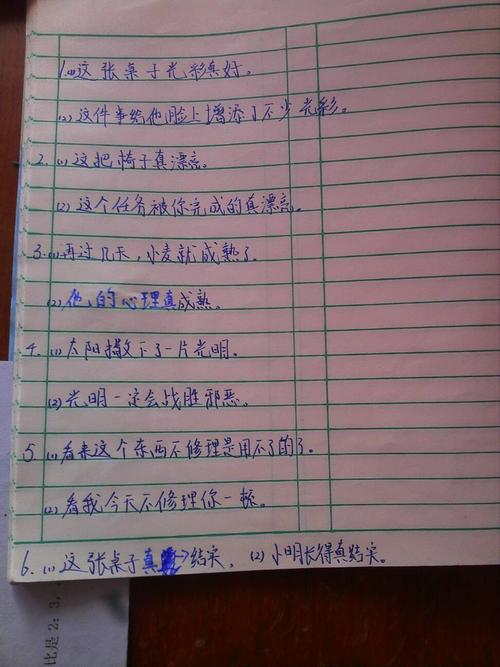 1.(1)这张桌子光彩真好。
(2)这件事给他脸上增添了不少光彩。
2.(1)这把椅子真漂亮。
(2)这个任务被你完成的真漂亮。
3.(1)再过几天，小麦就成熟了。
(2)他的心理真成熟。
4.(1)太阳撒下了一片光明。
(2)光明一定会战胜邪恶。
5(1)看来这个东西不修理是用不了的了。
(2)看我今天不修理你一顿。
6.(1)这张桌子真结实，(2)小明长得真结实。
比是2:3,